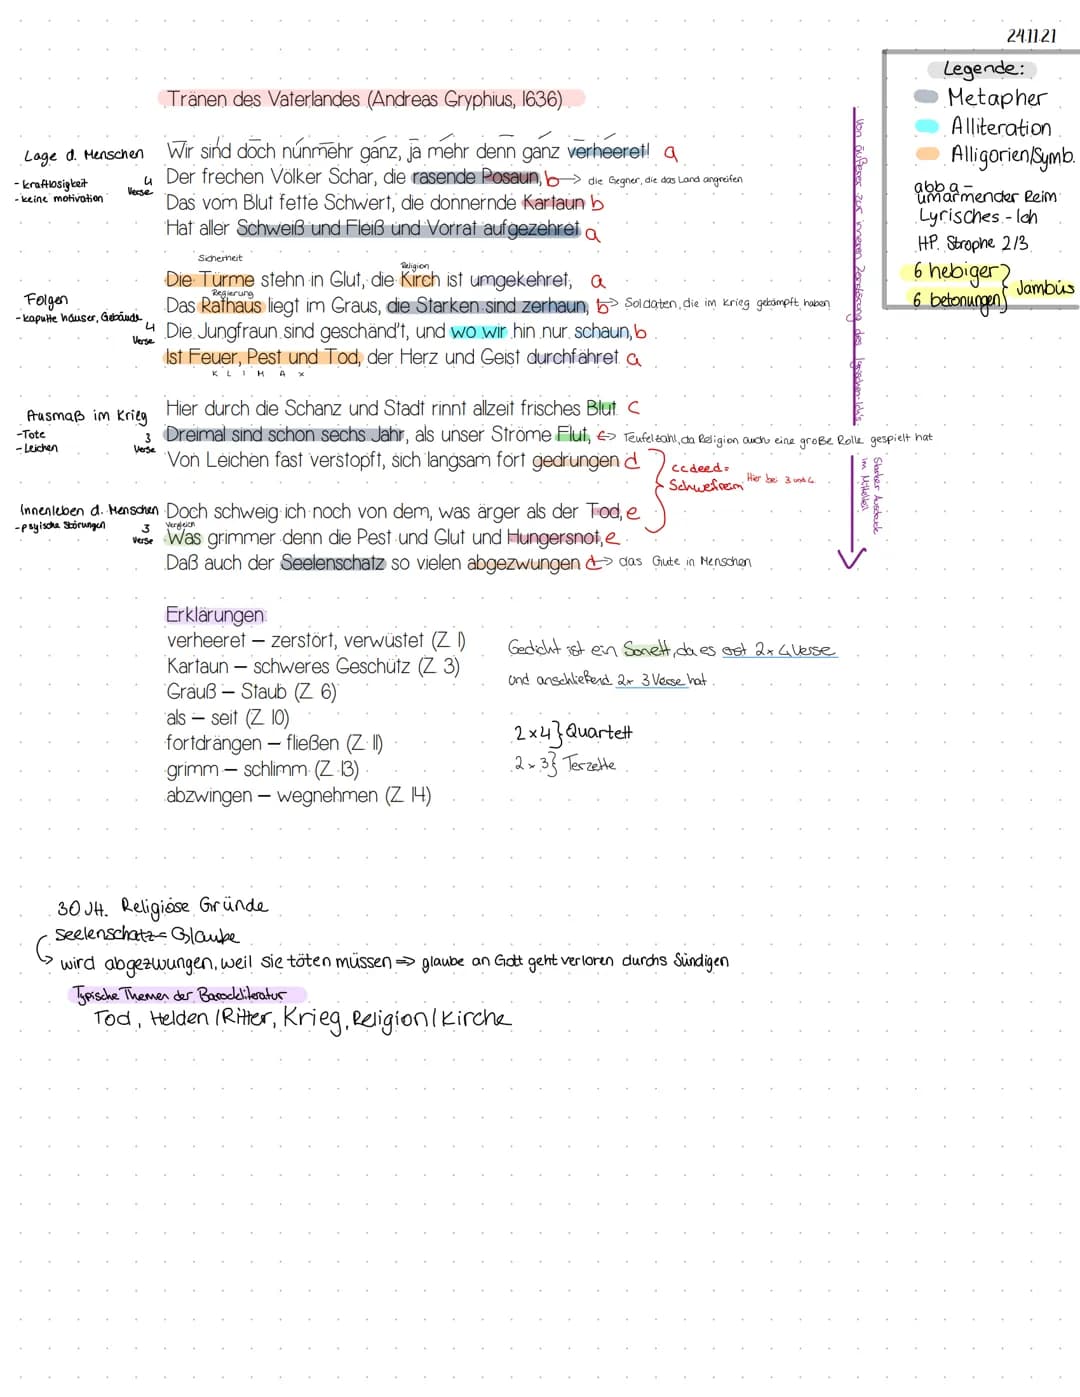 24.11.21
Legende:
Metapher
Alliteration
Alligorien/Symb.
abba-
umarmender Reim
Lyrisches - Ich
HP. Strophe 2/3
6 hebiger
6 betonungen } Jambus
Tränen des Vaterlandes (Andreas Gryphius, 1636)
Lage d. Menschen
- kraftlosigkeit
- keine motivation
4 Verse
Wir sind doch nunmehr ganz, ja mehr denn ganz verheeret! a
Der frechen Völker Schar, die rasende Posaun, b → die Gegner, die das Land angreifen
Das vom Blut fette Schwert, die donnernde Kartaun b
Hat aller Schweiß und Fleiß und Vorrat aufgezehret. a
Sicherheit
Religion
Die Türme stehn in Glut, die Kirch ist umgekehret, a
Regierung
Folgen
- kaputte häuser, Gebäude
4 Verse
Das Rathaus liegt im Graus, die Starken sind zerhaun, b → Soldaten, die im Krieg gekämpft haben
Die Jungfraun sind geschänd't, und wo wir hin nur schaun, b
Ist Feuer, Pest und Tod, der Herz und Geist durchfähret. a
K L I M A X
Ausmaß im Krieg
- Tote
- Leichen
3 Verse
Hier durch die Schanz und Stadt rinnt allzeit frisches Blut. c
Dreimal sind schon sechs Jahr, als unser Ströme Flut, c → Teufelzahl, da Religion auch eine große Rolle gespielt hat
Von Leichen fast verstopft, sich langsam fort gedrungen d
ccdeed=
Schweifreim
Hier bei 3 und 4
Innenleben d. Menschen
- psyische Störungen
3 Verse
Doch schweig ich noch von dem, was ärger als der Tod, e
Vergleich
Was grimmer denn die Pest und Glut und Hungersnot, e
Daß auch der Seelenschatz so vielen abgezwungen d → das Gute in Menschen
Von äußerer zur inneren Zerstörung des lyrischen-Ichs
Starker Ausdruck
im Mittelteil
Erklärungen
verheeret – zerstört, verwüstet (Z. 1)
Kartaun – schweres Geschütz (Z. 3)
Grauß – Staub (Z. 6)
als – seit (Z. 10)
fortdrängen – fließen (Z. 11)
grimm – schlimm (Z. 13)
abzwingen – wegnehmen (Z. 14)
Gedicht ist ein Sonett, da es erst 2x 4 Verse
und anschließend 2x 3 Verse hat.
2x4 } Quartett
2x3 } Terzette
30 JH. Religiöse Gründe
Seelenschatz = Glaube
→ wird abgezwungen, weil sie töten müssen ⇒ glaube an Gott geht verloren durchs Sündigen
Typische Themen der Barockliteratur
Tod, Helden/Ritter, Krieg, Religion/Kirche